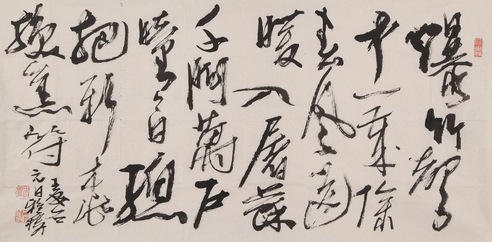 爆竹聲
中一歲除
春風送
暖入屠蘇
千門萬戶
曈々日總
把新桃
換舊符
王安石
元日